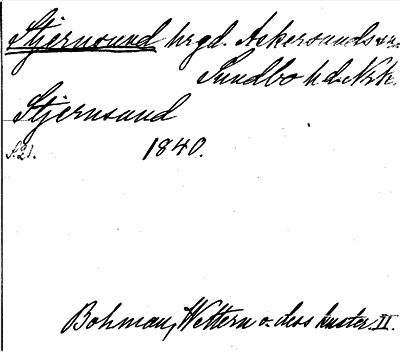 Stjernsund hrgd. Askersunds sn.
Sundbo hd. Nrk.
Stjernsund
S. 21. 1840.
Bohman, Wettern o. dess kuster II.